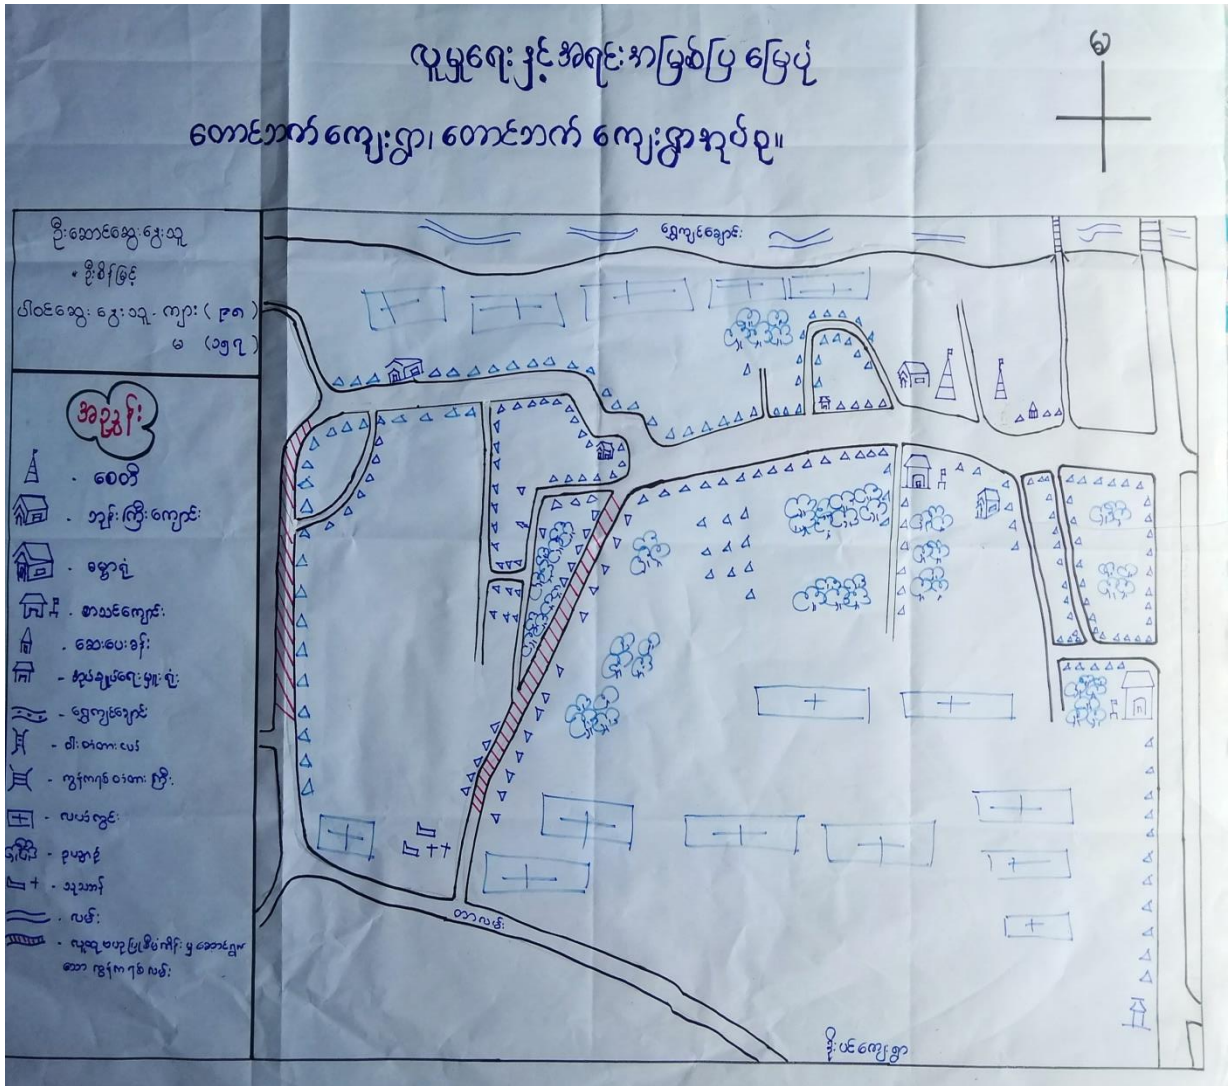 လူမှုရေးနှင့်အရင်းအမြစ်ပြ မြေပုံ
တောင်ဘက်ကျေးရွာ၊ တောင်ဘက် ကျေးရွာအုပ်စု။
ဦးဆောင်ဆွေးနွေးသူ
ဦးစိန်မြင့်
ပါဝင်ဆွေးနွေးသူ - ကျား (၉၈)
မ (၁၅၇)
အညွှန်း
- စေတီ
- ဘုန်းကြီးကျောင်း
- ဓမ္မာရုံ
- စာသင်ကျောင်း
- ဆေးပေးခန်း
- အုပ်ချုပ်ရေးမှူးရုံး
- ရွှေကျင်ချောင်း
- ဝါးတံတားငယ်
- ကွန်ကရစ်တံတားကြီး
- လယ်ကွင်း
- ဥယျာဉ်
- သုသာန်
- လမ်း
- လူထုဗဟိုပြုစီမံကိန်းမှ ဆောင်ရွက်
သော ကွန်ကရစ်လမ်း
ရွှေကျင်ချောင်း
တာလမ်း
ဒိုးပင်ကျေးရွာ